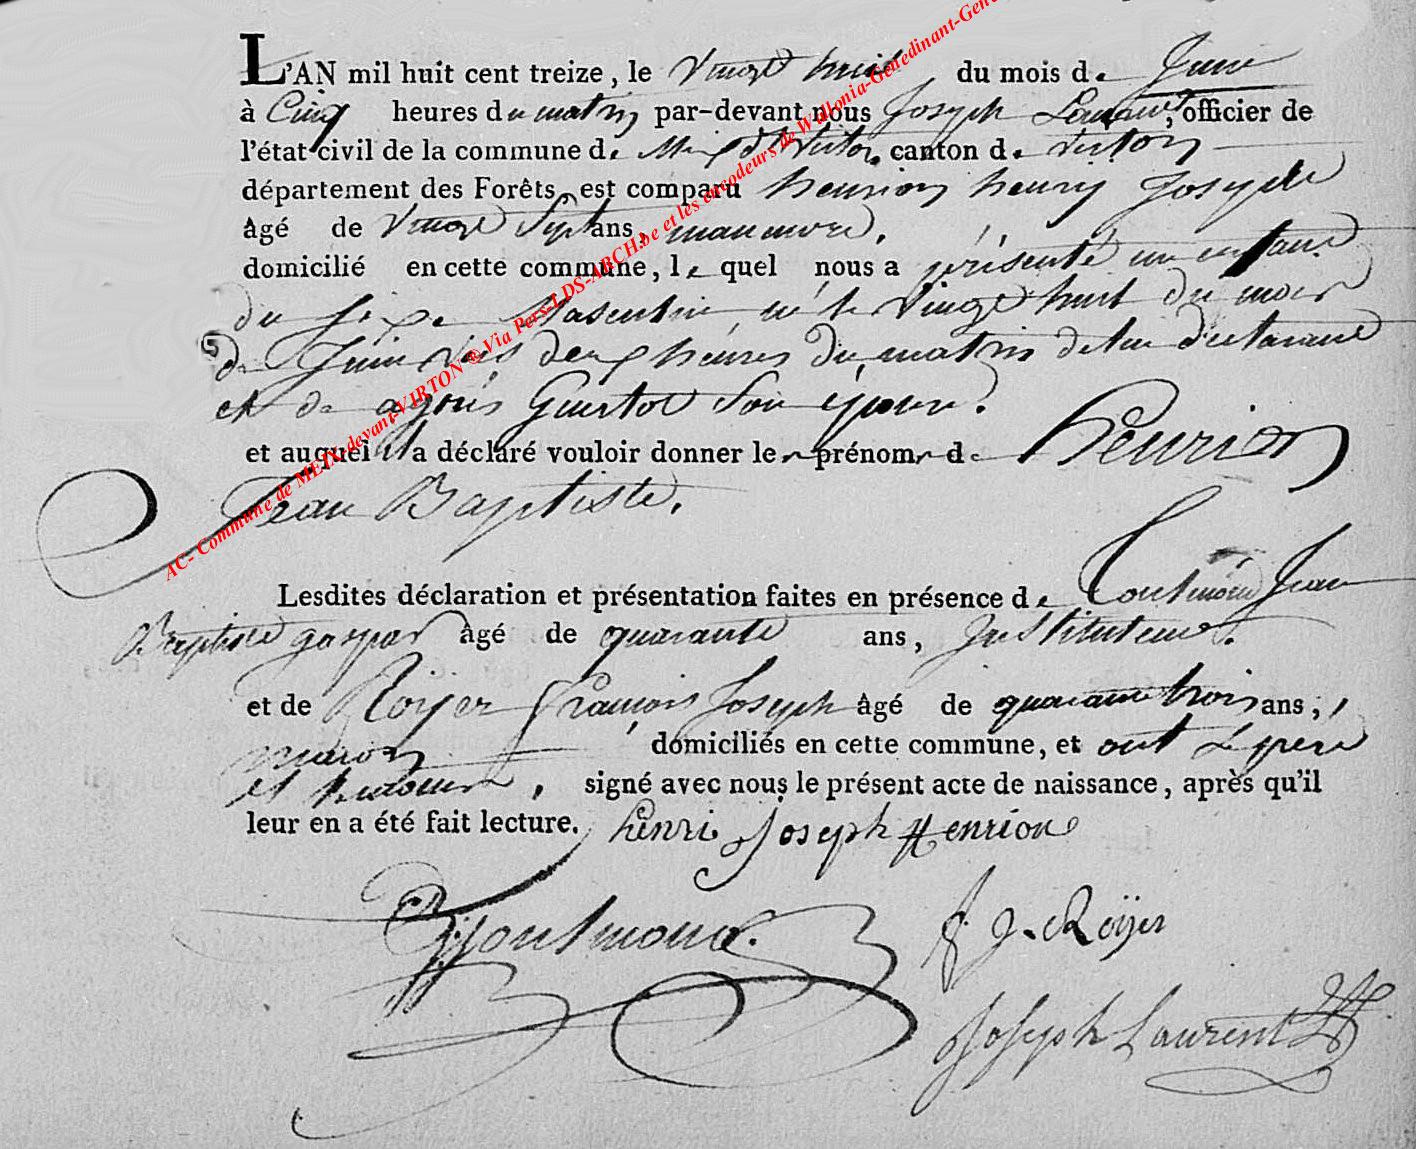 L'AN mil huit cent treize, le vingt huit du mois de Juin
à Cinq heures du matin par-devant nous Joseph Laurent, officier de
l'état civil de la commune de Meix dt Virton canton de virton
département des Forêts, est comparu henrion henry Joseph
âgé de vingt Sept ans, manuvre,
domicilié en cette commune, le quel nous a présenté un enfant
du Sexe Masculin, né le vingt huit du mois
de Juin dés deux heures du matin de lui declarant
et de agnés Guertot Son épouse.
et auquel il a déclaré vouloir donner les prénoms de henrion
Jean Baptiste.
Lesdites déclaration et présentation faites en présence de Jean
Baptiste gaspar âgé de quarante ans, Instituteur.
et de Roÿer François Joseph âgé de quarante trois ans,
maron domiciliés en cette commune, et ont le pere
et temoins, signé avec nous le présent acte de naissance, après qu'il
leur en a été fait lecture. henri Joseph Henrion
f. J. Roÿer
Joseph Laurent
AC- Commune de MEIX-devant-VIRTON ® Via Pers-LDS-ARCH.be et les encodeurs de Wallonia-Genedinant-Gene